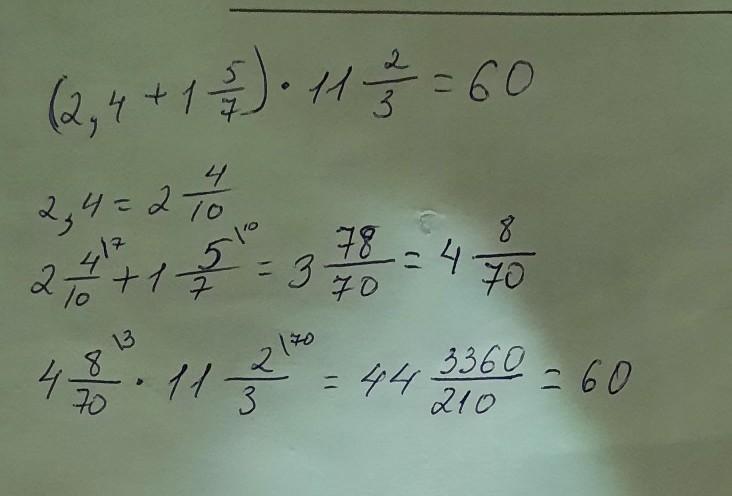 (2,4 + 1 5/7) · 11 2/3 = 60
2,4 = 2 4/10
2 4\7/10 + 1 5\10/7 = 3 78/70 = 4 8/70
4 8\3/70 · 11 2\70/3 = 44 3360/210 = 60